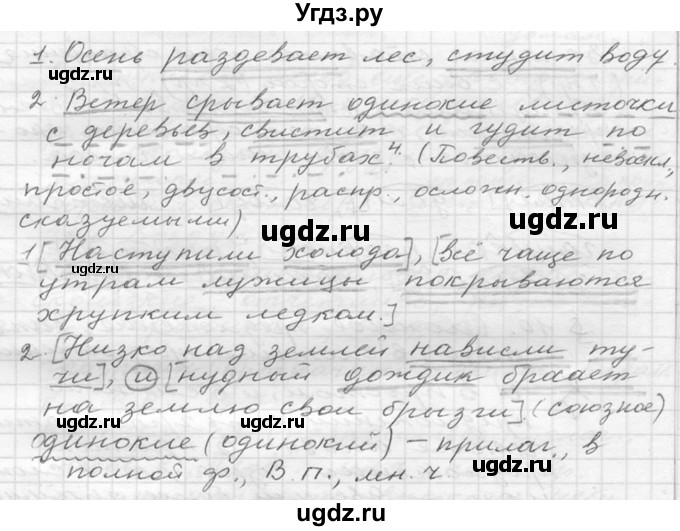 Угдз.ру
1. Осень раздевает лес, студит воду.
ugdz.ru
ugdz.ru
2. Ветер срывает одинокие листочки
с деревьев, свистит и гудит по
ugdz.ru
ночам в трубах⁴. (Повеств., невоскл.,
простое, двусост., распр., осложн. однородн.
ugdz.ru
сказуемыми)
ugdz.ru
1[Наступили холода], [всё чаще по
ugdz.ru
утрам лужицы покрываются
хрупким ледком.]
ugdz.ru
2. [Низко над землей нависли ту-
чи], и [нудный дождик бросает
ugdz.ru
на землю свои брызги] (союзное)
ugdz.ru
одинокие (одинокий) – прилаг., в
ugdz.ru
полной ф., В.п., мн.ч.
ugdz.ru